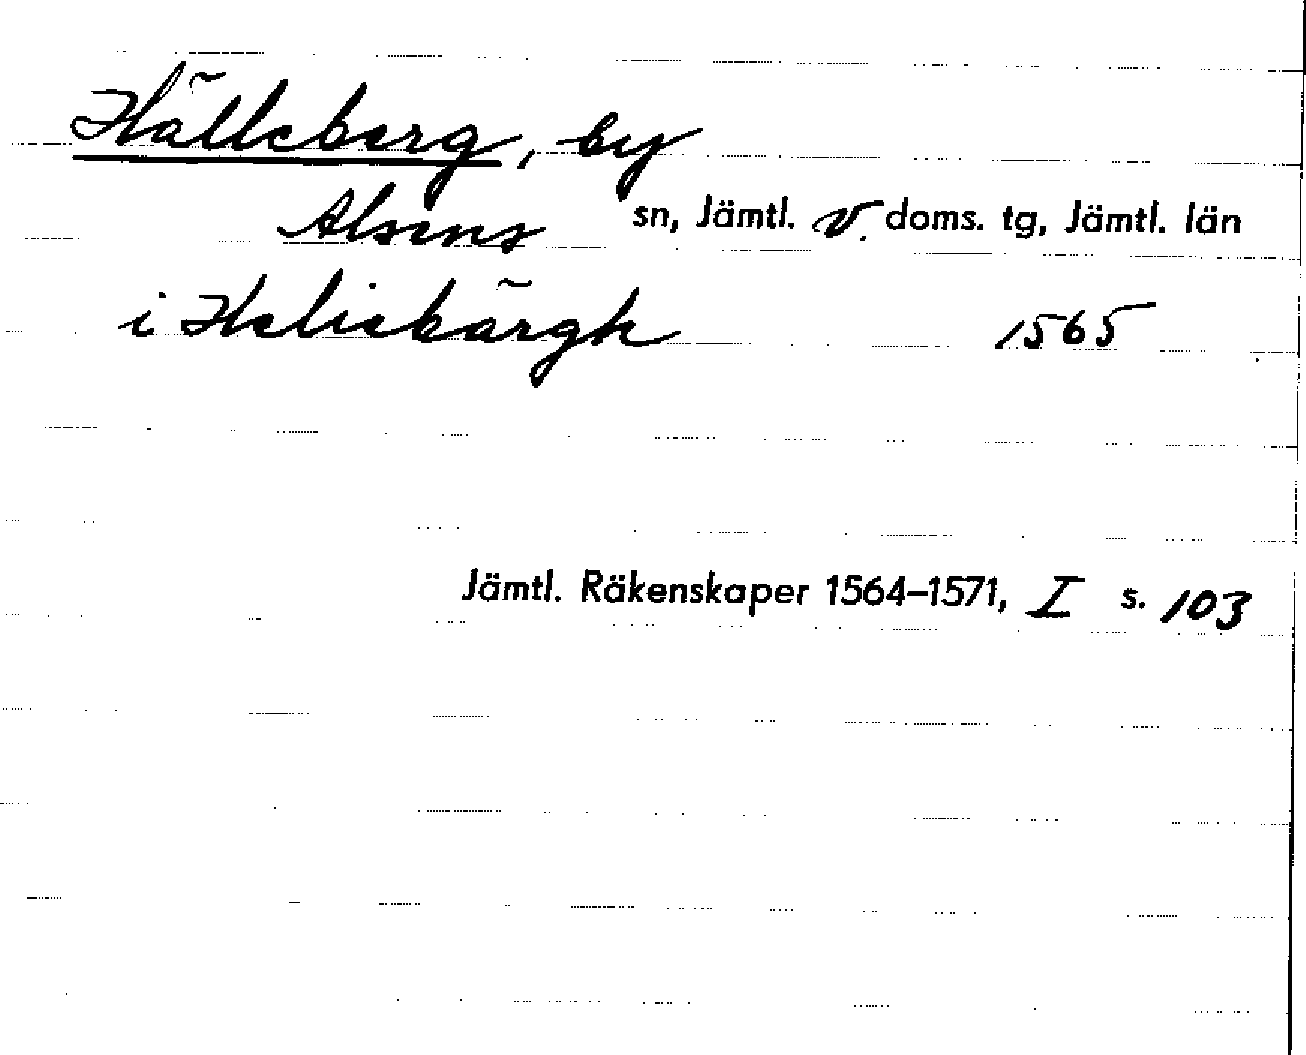 Hälleberg, by
Alsens sn, Jämtl. v. doms. tg, Jämtl. län
i Heliebärgh 1565
Jämtl. Räkenskaper 1564–1571, I s. 103